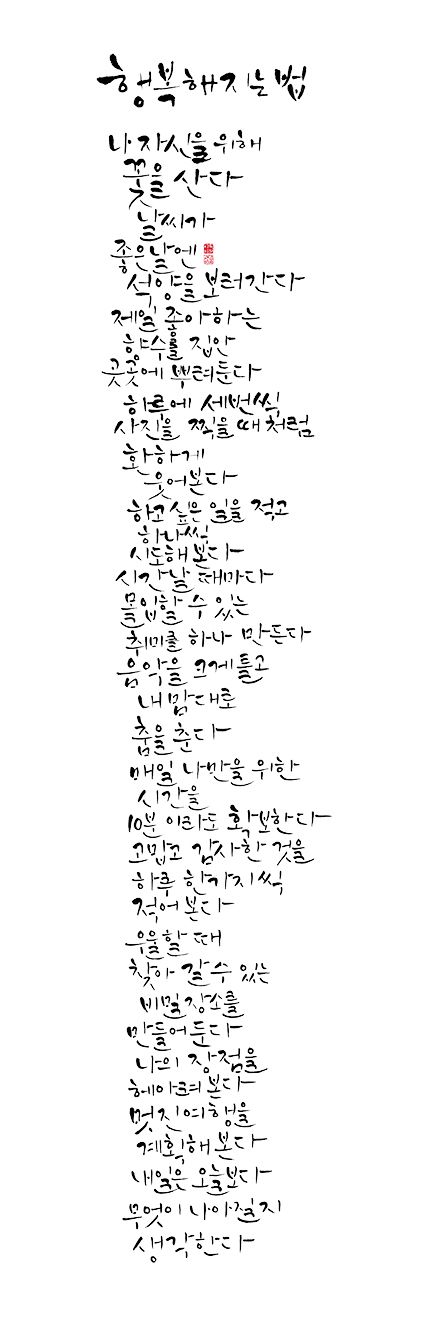 행복해지는 법
나 자신을 위해
꽃을 산다
날씨가
좋은날엔
석양을 보러간다
제일 좋아하는
향수를 집안
곳곳에 뿌려둔다
하루에 세번씩
사진을 찍을때 처럼
환하게
웃어본다
하고 싶은 일을 적고
하나씩
시도해 본다
시간날 때마다
몰입할 수 있는
취미를 하나 만든다
음악을 크게 틀고
내 맘대로
춤을 춘다
매일 나만을 위한
시간을
10분 이라도 확보한다
고맙고 감사한 것을
하루 한가지씩
적어본다
우울할 때
찾아 갈 수 있는
비밀장소를
만들어둔다
나의 장점을
헤아려 본다
멋진여행을
계획해 본다
내일은 오늘보다
무엇이 나아질지
생각한다